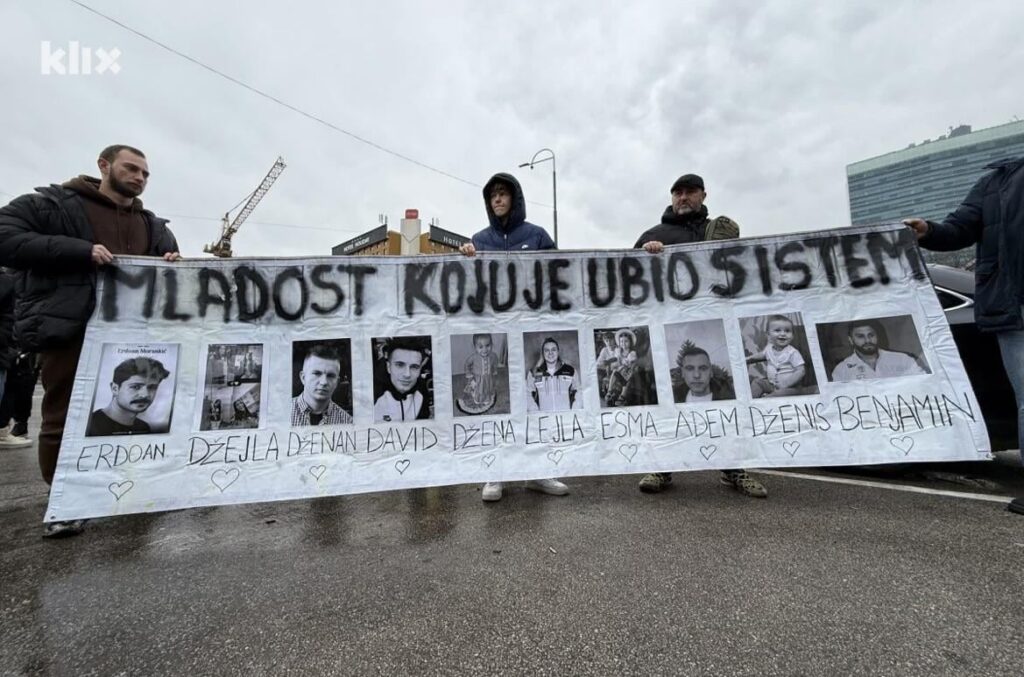 klix
HOTEL HOLIDAY
HOTEL
MLADOST KOJU JE UBIO SISTEM
Erdoan Morankić
ERDOAN DŽEJLA DŽENAN DAVID DŽENA LEJLA ESMA ADEM DŽENIS BENJAMIN